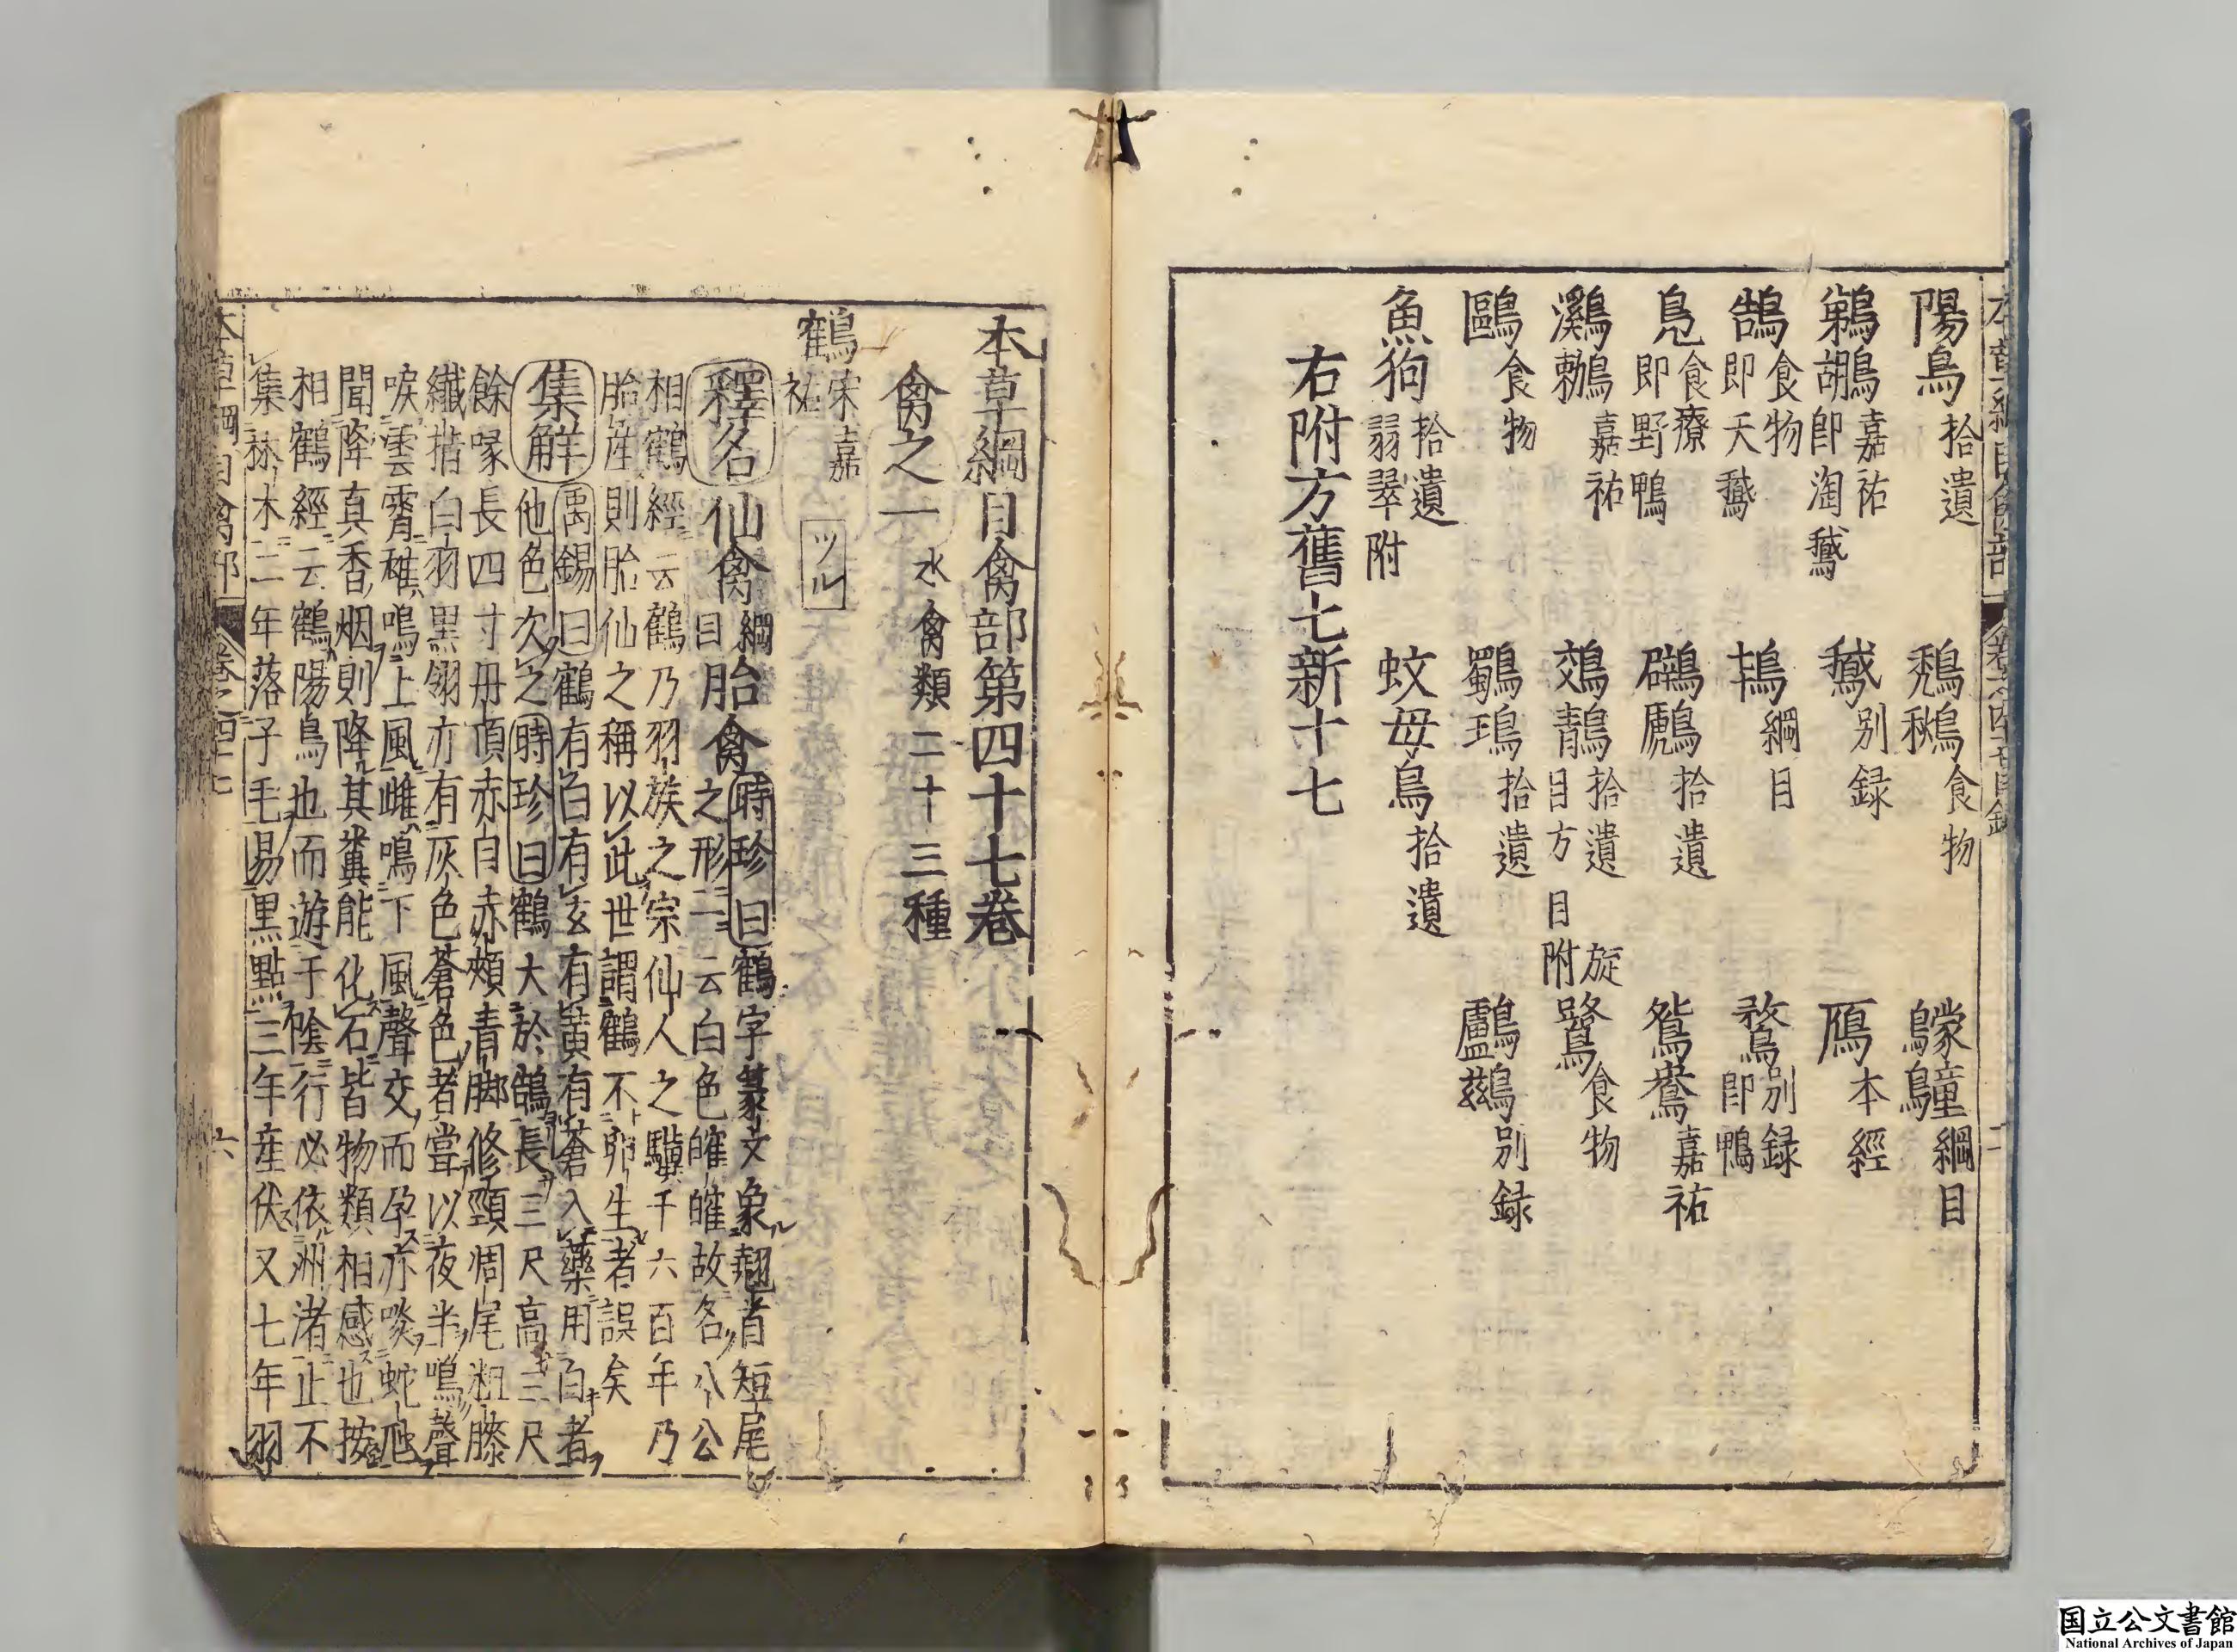 陽烏拾遺　鵚鶖食物　鸏𪆻綱目
鵜鶘嘉祐即淘鵞　鵞別録　鴈本經
鵠食物即天鵞　鴇綱目　鶩別録即鴨
鳧食療即野鴨　鸊鷉拾遺　鴛鴦嘉祐
鸂鶒嘉祐　鵁鶄拾遺　旋目方目附　鷺食物
鷗食物　鸀鳿拾遺　鸕鷀別録
魚狗拾遺翡翠附　蚊母鳥拾遺
右附方舊七新十七
本草綱目禽部第四十七卷
禽之一水禽類二十三種
鶴宋嘉祐　ツル
釋名仙禽綱目胎禽時珍曰鶴字篆文象翹首短尾
之形一云白色皠皠故名八公
相鶴經云鶴乃羽族之宗仙人之驥千六百年乃
胎産則胎仙之稱以此世謂鶴不卵生者誤矣
集解禹錫曰鶴有白有玄有黃有蒼入藥用白者
他色次之時珍曰鶴大於鵠長三尺高三尺
餘喙長四寸丹頂赤目赤頰青脚修頸凋尾粗膝
纖指白羽黑翎亦有灰色蒼色者嘗以夜半鳴聲
唳雲霄雄鳴上風雌鳴下風聲交而孕亦啖蛇虺
聞降真香烟則降其糞能化石皆物類相感也按
相鶴經云鶴陽鳥也而遊于陰行必依洲渚止不
集林木二年落子毛易黑點三年産伏又七年羽
本草綱目禽部　卷之四十七　六
国立公文書館
National Archives of Japan